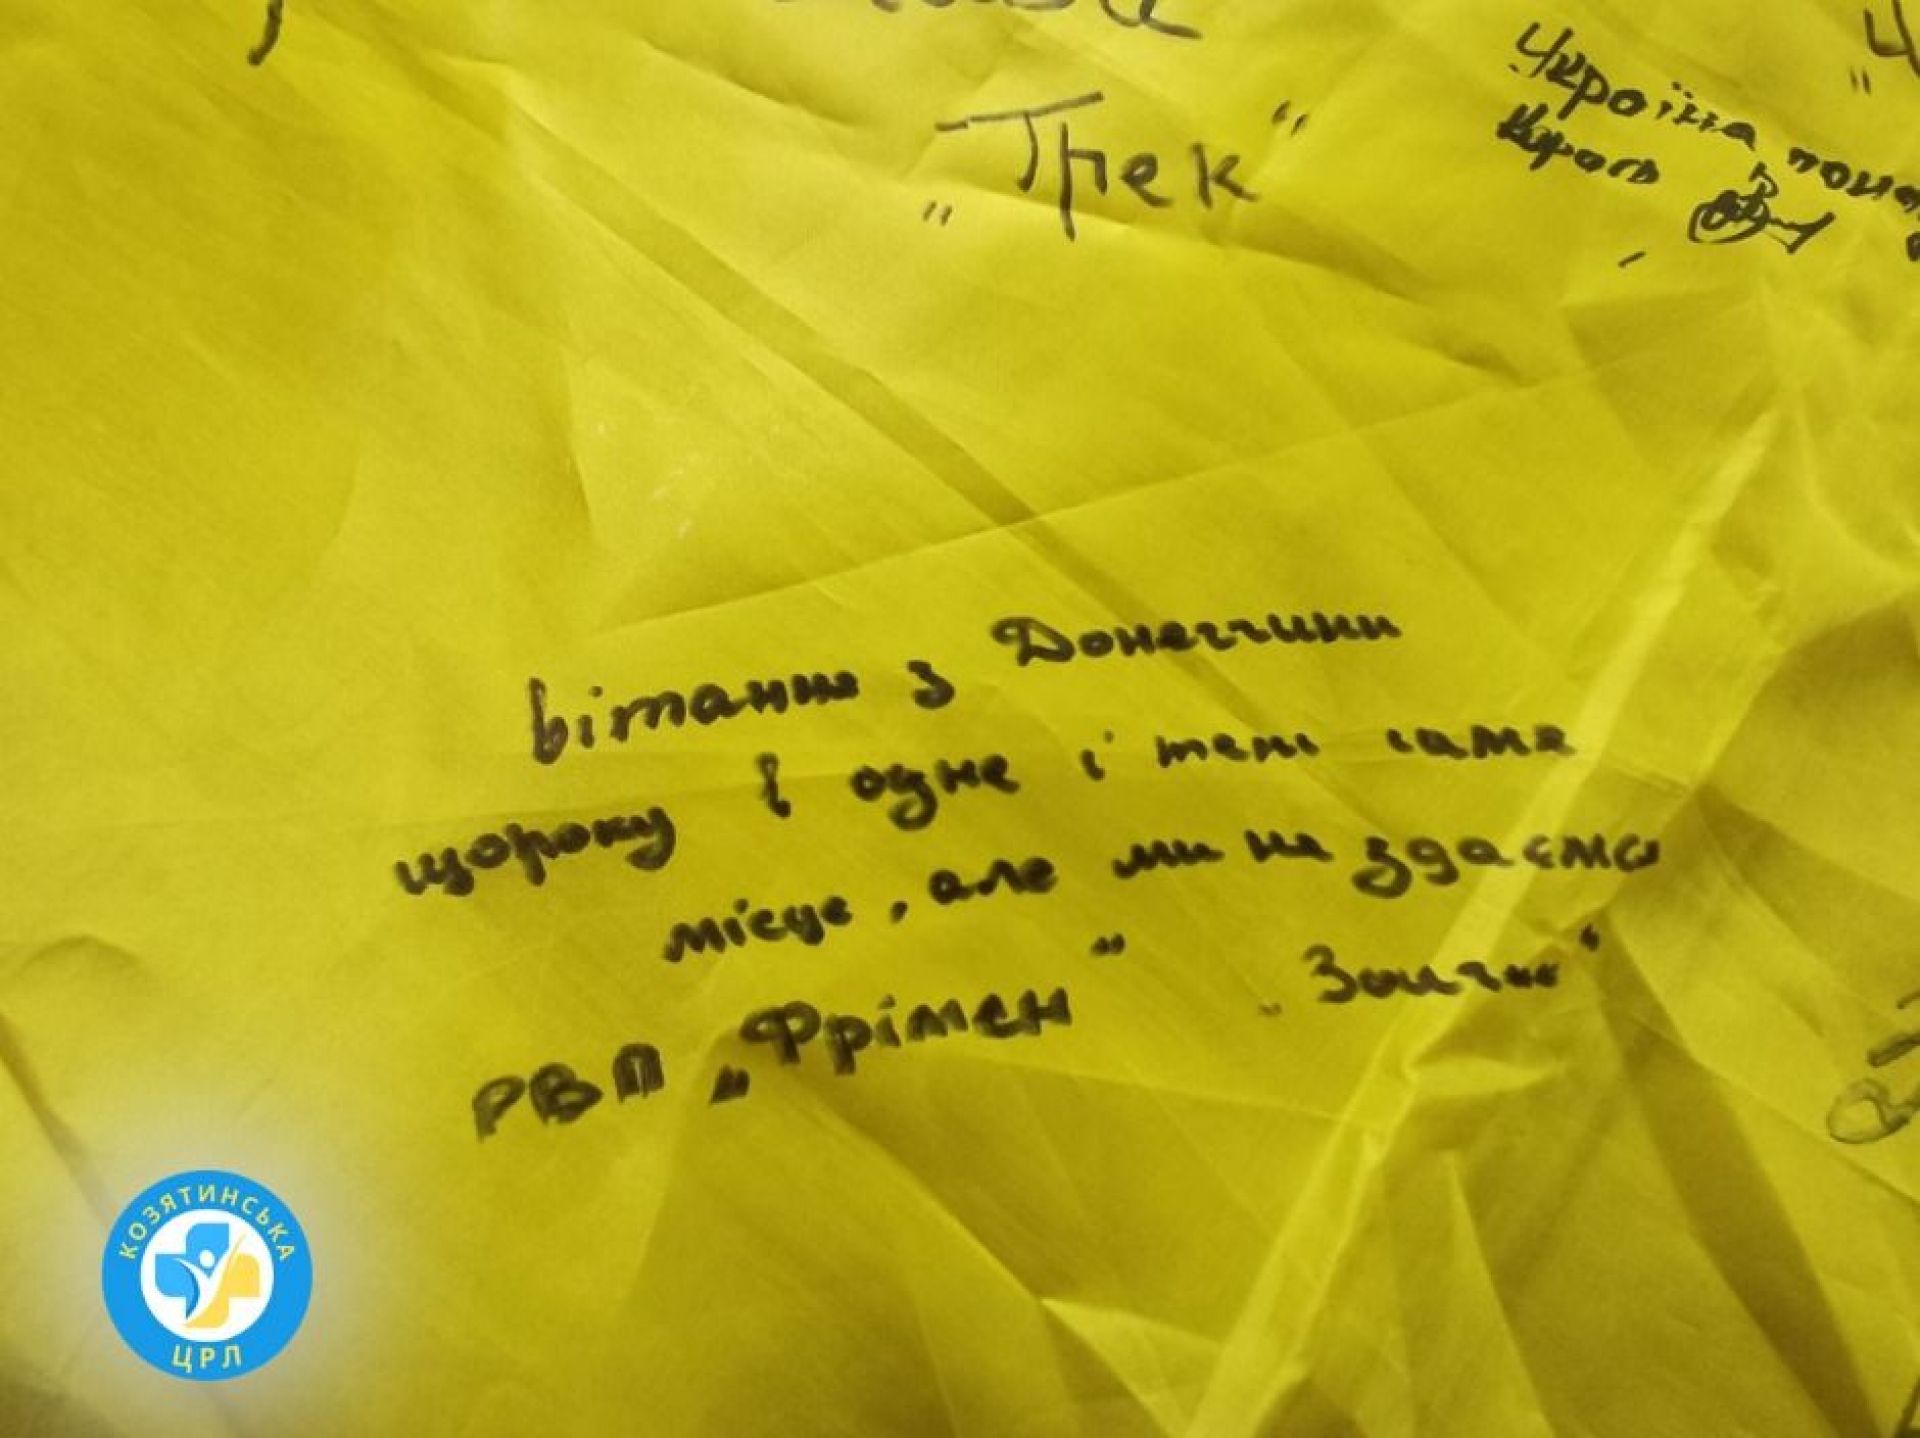 "Трек"
Україна пона
вітання з Донеччини
щороку в одне і теж саме
місце, але ми не здаємо
РВП „Фрімен"
КОЗЯТИНСЬКА
ЦРЛ